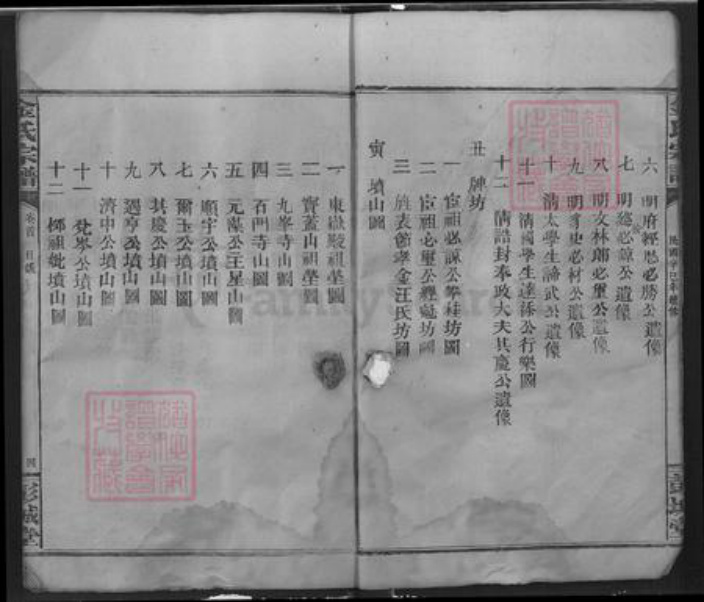 金氏宗譜
六 明府經歷必勝公遺像
七 明總必諒公遺像
八 明文林郎必璽公遺像
九 明掾史必材公遺像
十 清太學生諦武公遺像
十一 清國學生達添公行樂圖
十二 清誥封奉政大夫其慶公遺像
丑 牌坊
一 宦祖必諒公拳桂坊圖
二 宦祖必璽公經魁坊圖
三 旌表節孝金汪氏坊圖
寅 墳山圖
一 東嶽殿祖塋圖
二 寶蓋山祖塋圖
三 九峯寺山圖
四 石門寺山圖
五 元藻公王星山圖
六 順宇公墳山圖
七 爾玉公墳山圖
八 其慶公墳山圖
九 遇亨公墳山圖
十 濟中公墳山圖
十一 梵峯公墳山圖
十二 祖妣墳山圖
金氏宗譜
卷首 目錄
四
彭城堂